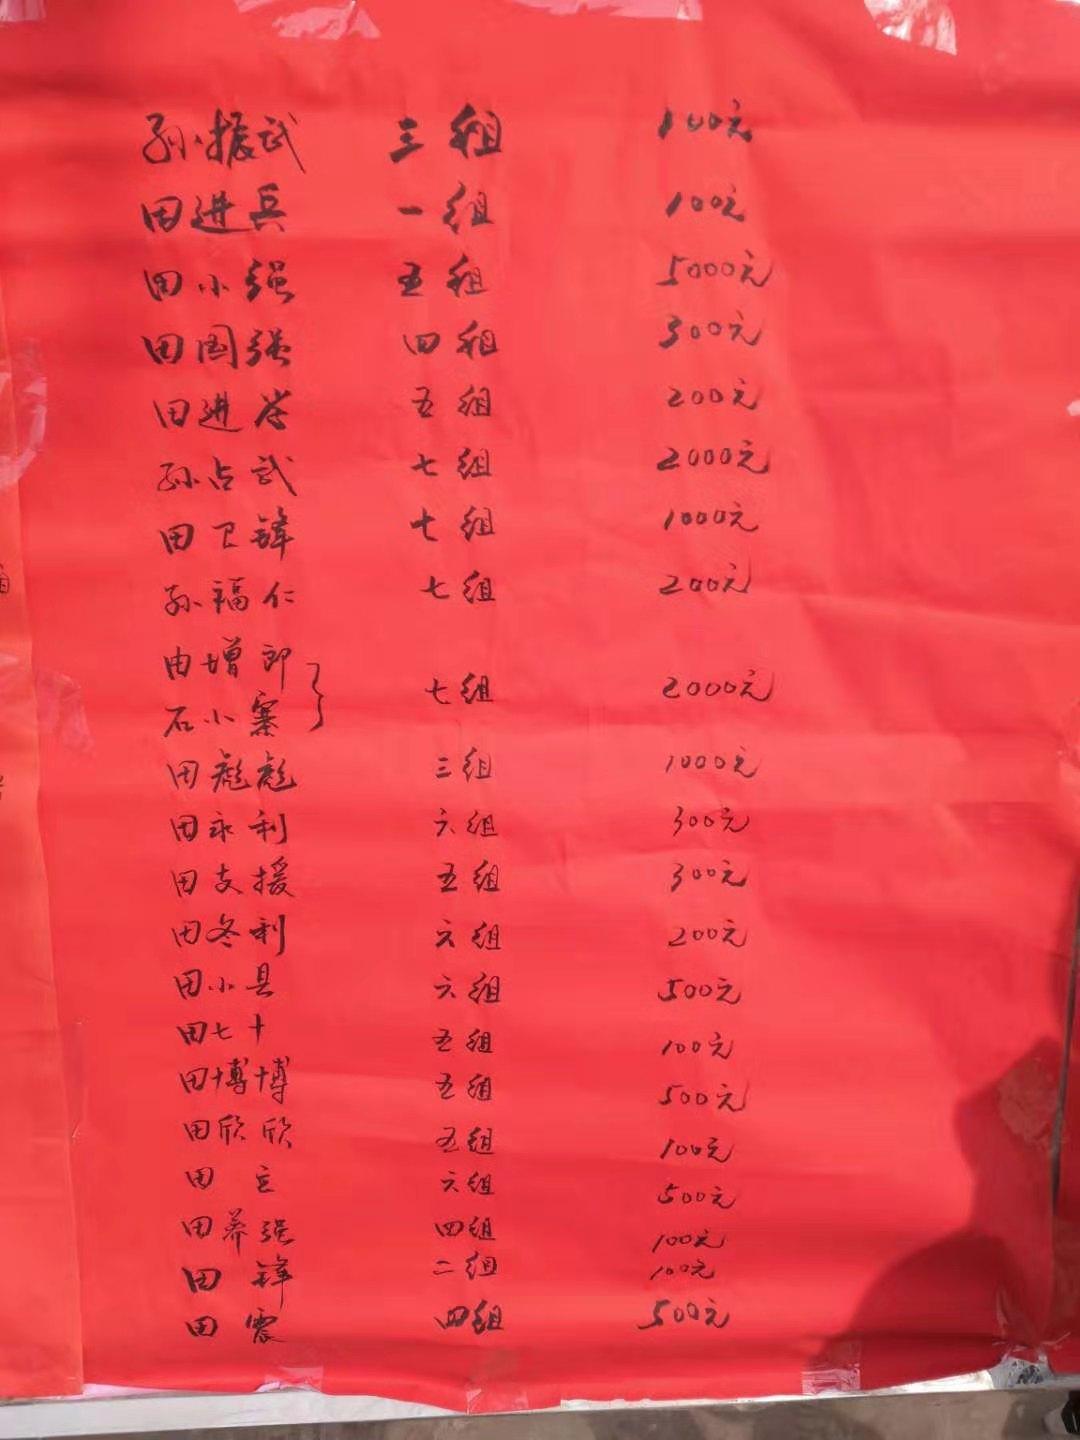 孙振武 三组 100元
田进兵 一组 100元
田小强 五组 5000元
田国强 四组 300元
田进学 五组 200元
孙占武 七组 2000元
田卫锋 七组 1000元
孙福仁 七组 200元
田增郎
七组 2000元
石小寨
田彪彪 三组 1000元
田永利 六组 300元
田支援 五组 300元
田冬利 六组 200元
田小县 六组 500元
田七十 五组 100元
田博博 五组 500元
田欣欣 五组 100元
田立 六组 500元
田养强 四组 100元
田锋 二组 100元
田震 四组 500元